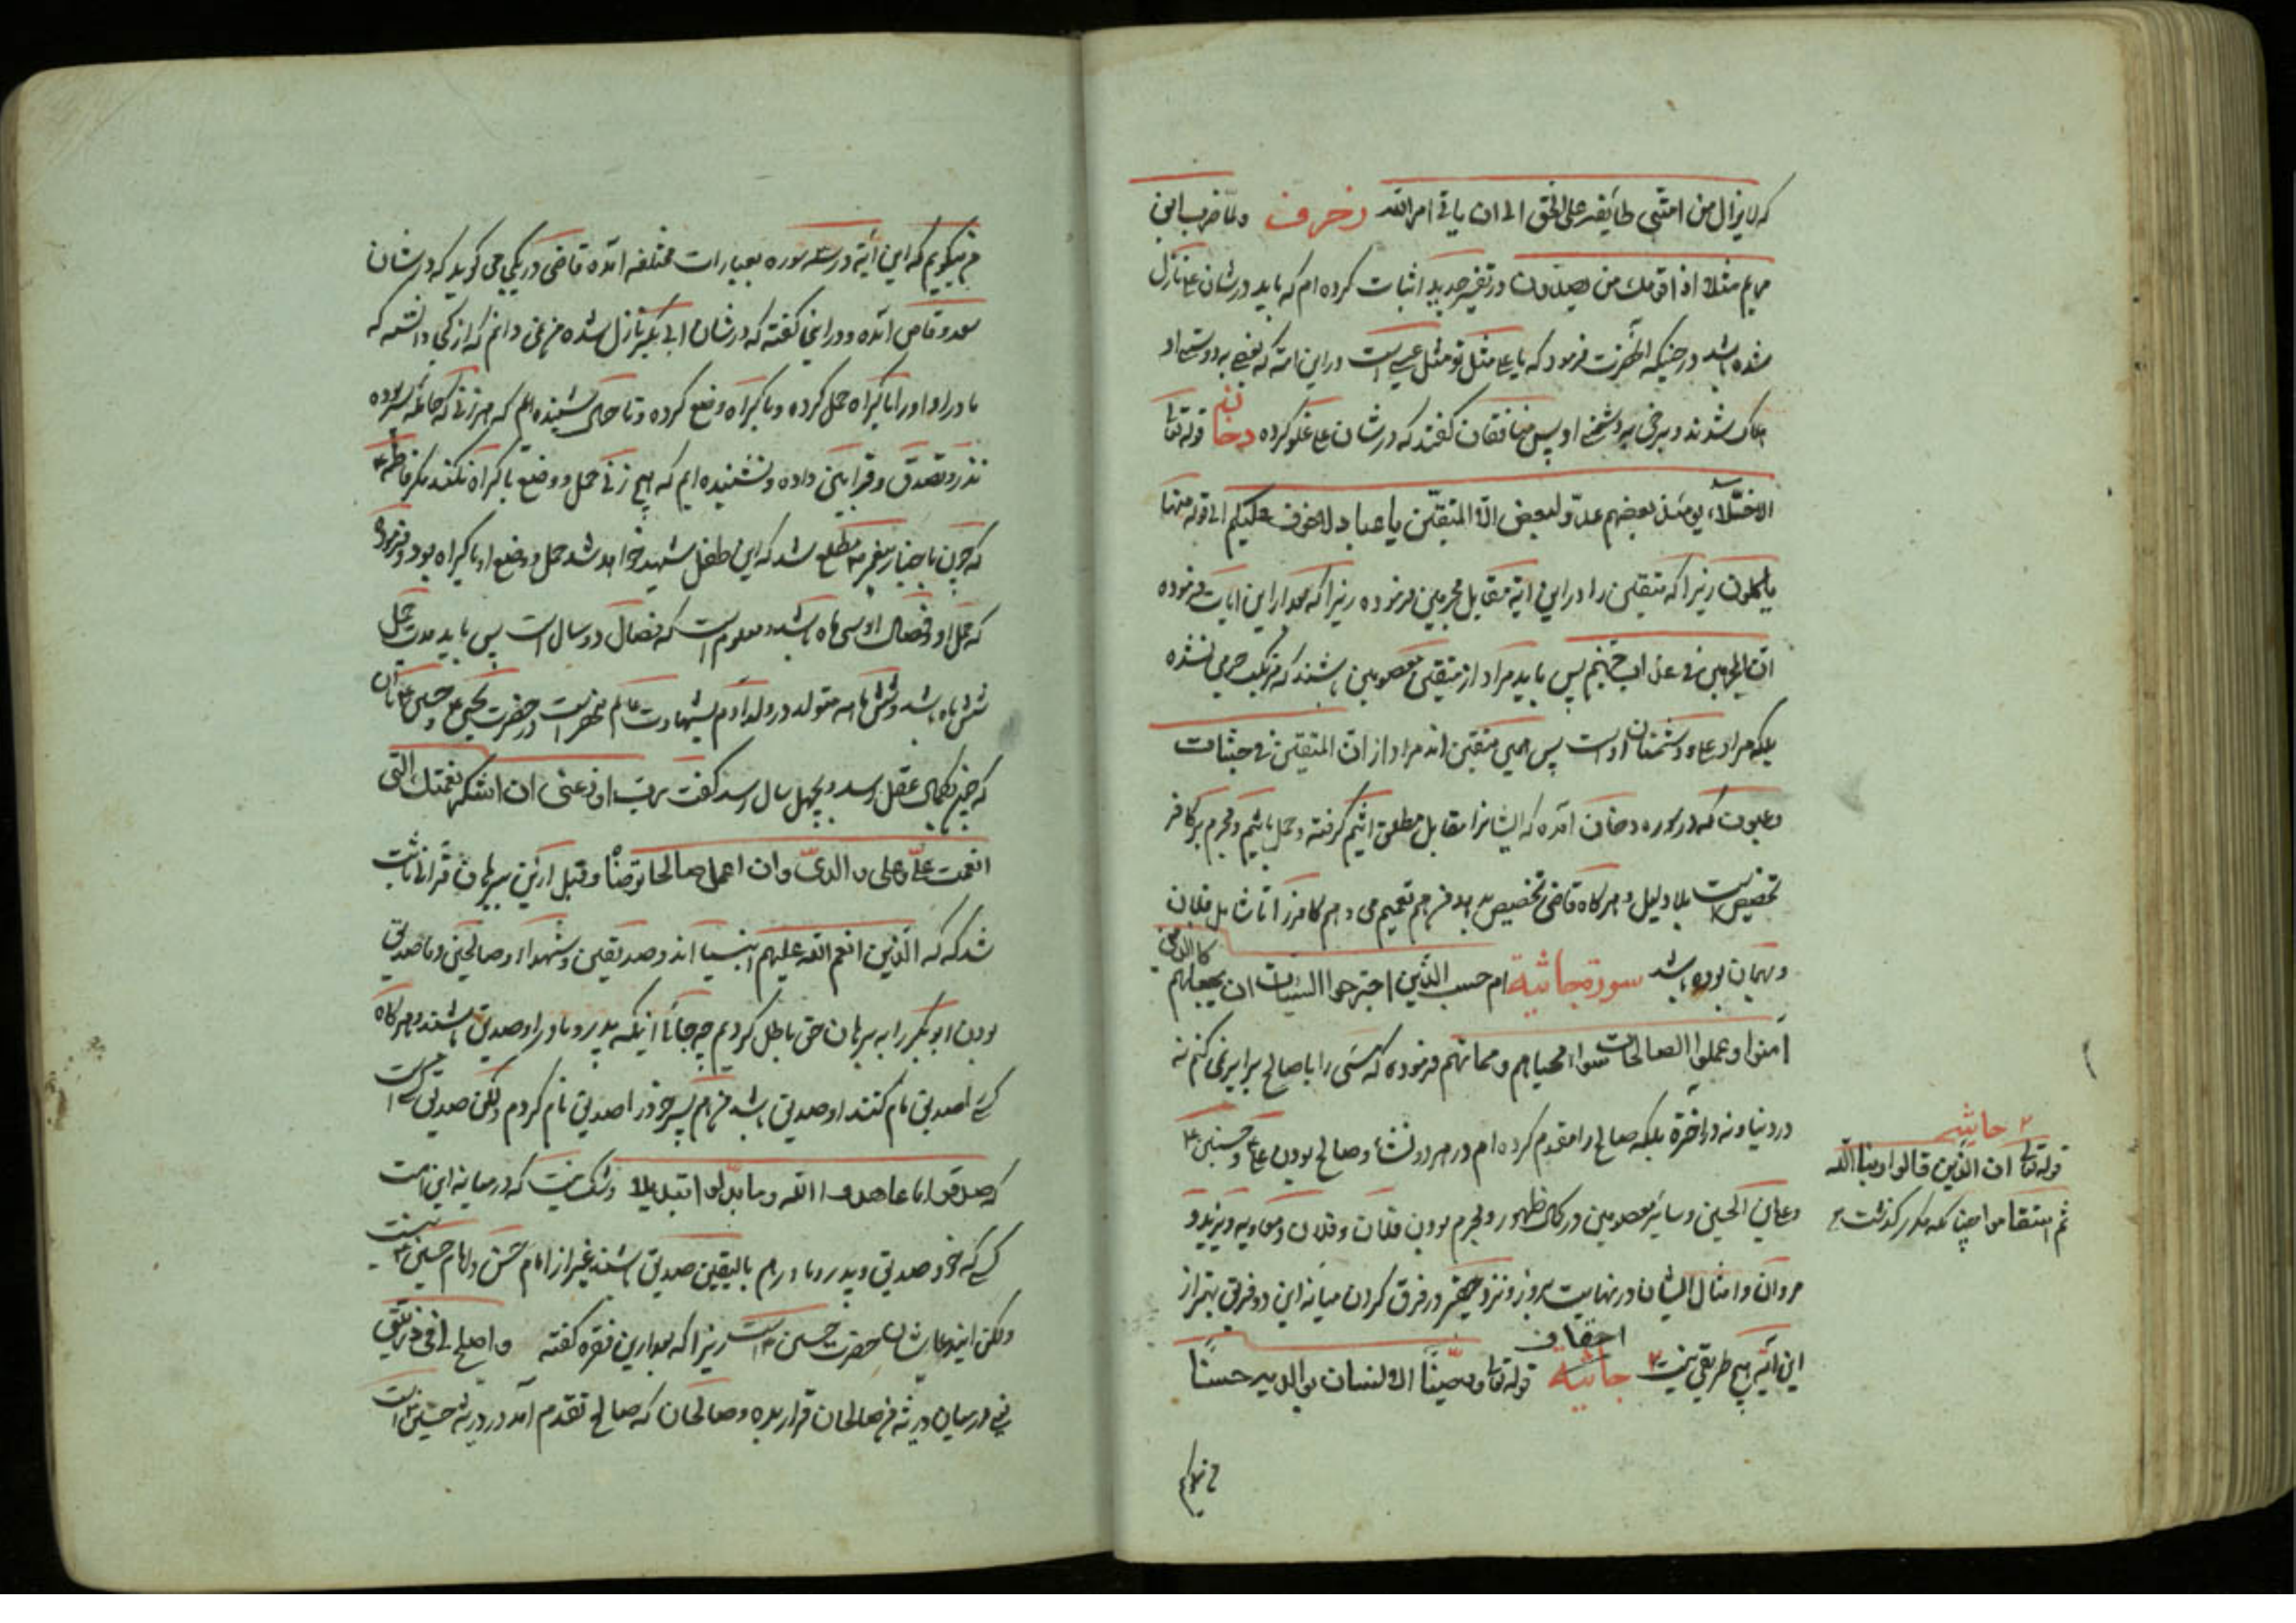 که لا یزال من امتی طایفة علی الحق الی ان یاتی امر الله زخرف ولما ضرب ابن
مریم مثلا اذا قومک من یصدون در تفسیر جدید اثبات کرده ام که باید در شان علی نازل
شده باشد در حینیکه آنحضرت فرمود که یا علی مثل تو مثل عیسی است در این امة که بعضی به دوستی او
هلاک شدند و برخی به دشمنی او پس منافقان گفتند که در شان علی غلو کرده دخان قوله تعالی
الاخلاء یومئذ بعضهم عدو لبعض الا المتقین یا عباد لا خوف علیکم الی قوله منها
یاکلون زیرا که متقین را در این آیة مقابل مجرمین فرموده زیرا که بعد از این آیات فرموده
ان المجرمین فی عذاب جهنم پس باید مراد از متقین معصومین باشند که مرتکب جرمی نشده
بلکه مراد علی و دشمنان اوست پس همین متقین اند مراد از ان المتقین فی جنات
وعیون که در سوره دخان آمده که ایشانرا مقابل مطلق اثیم گرفته و حمل باثیم و مجرم بر کافر
تخصیص است بلا دلیل و هرگاه قاضی تخصیص بدهد من هم تعمیم می دهم کافر را تا شامل فلان
کالذین
و بهمان بوده باشد سورة جاثیة ام حسب الذین اجترحوا السیئات ان نجعلهم
آمنوا وعملوا الصالحات سواء محیاهم ومماتهم فرموده که مسی را با صالح برابر نمی کنم نه
در دنیا و نه در آخرة بلکه صالح را مقدم کرده ام در هر دو نشاء و صالح بودن علی و حسنین ع
و علی بن الحسین و سایر معصومین در کمال ظهور و مجرم بودن فلان و فلان و معاویه و یزید و
مروان و امثال ایشان در نهایت بروز و نزد حقیر در فرق کردن میانه این دو فریق بهتر از
احقاف
این آیه هیچ طریقی نیست ۲ جاثیة قوله تعالی ووصینا الانسان بوالدیه حسنا
من میگویم
۲ جاثیه
قوله تعالی ان الذین قالوا ربنا الله
ثم استقاموا چنانکه مکرر گذشت
من میگویم که این آیة در سه سوره بعبارات مختلفه آمده قاضی در یکی می گوید که در شان
سعد وقاص آمده و در اینجا گفته که در شان ابی بکر نازل شده من نمی دانم که از کجا دانسته که
مادر او او را باکراه حمل کرده و باکراه وضع کرده و تا حال شنیده ایم که هر زنی که حامله شده
نذر و تصدق و قرابین داده و نشنیده ایم که هیچ زنی حمل و وضع باکراه بکند مگر فاطمه ع
که چون باخبار پیغمبر ص مطلع شد که این طفل شهید خواهد شد حمل و وضع او باکراه بود و فرمود
که حمل او و فصال او سی ماه باشد و معلوم است که فصال دو سال است پس باید مدت حمل
شش ماه باشد و شش ماهه متولد در ولد آدم بشهادت عالم منحصر است در حضرت یحیی ع و حسین ع
که چون بکمال عقل رسد و بچهل سال رسد گفت رب اوزعنی ان اشکر نعمتک التی
انعمت علی وعلی والدی وان اعمل صالحا ترضاه و قبل از این ببرهان قرآنی ثابت
شد که الذین انعم الله علیهم انبیا اند و صدیقین و شهداء و صالحین و ما صدیق
بودن ابو بکر را به برهان حق باطل کردیم چه جای آنکه پدر و مادر او صدیق باشند و هرگاه
کسی را صدیق نام کنند او صدیق باشد من هم پسر خود را صدیق نام کردم ولکن صدیق کسی است
که صدقوا ما عاهدوا الله وما بدلوا تبدیلا و شک نیست که در میانه این امت
کسی که خود صدیق و پدر و مادرهم بالیقین صدیق باشند غیر از امام حسن و امام حسین ع نیست
ولکن این دعا شان حضرت حسین ع است زیرا که بعد از این فقره گفته واصلح لی فی ذریتی
یعنی در میان ذریه من صالحان قرار بده و صالحان که صالح تقدم آمد در ذریه حسین است